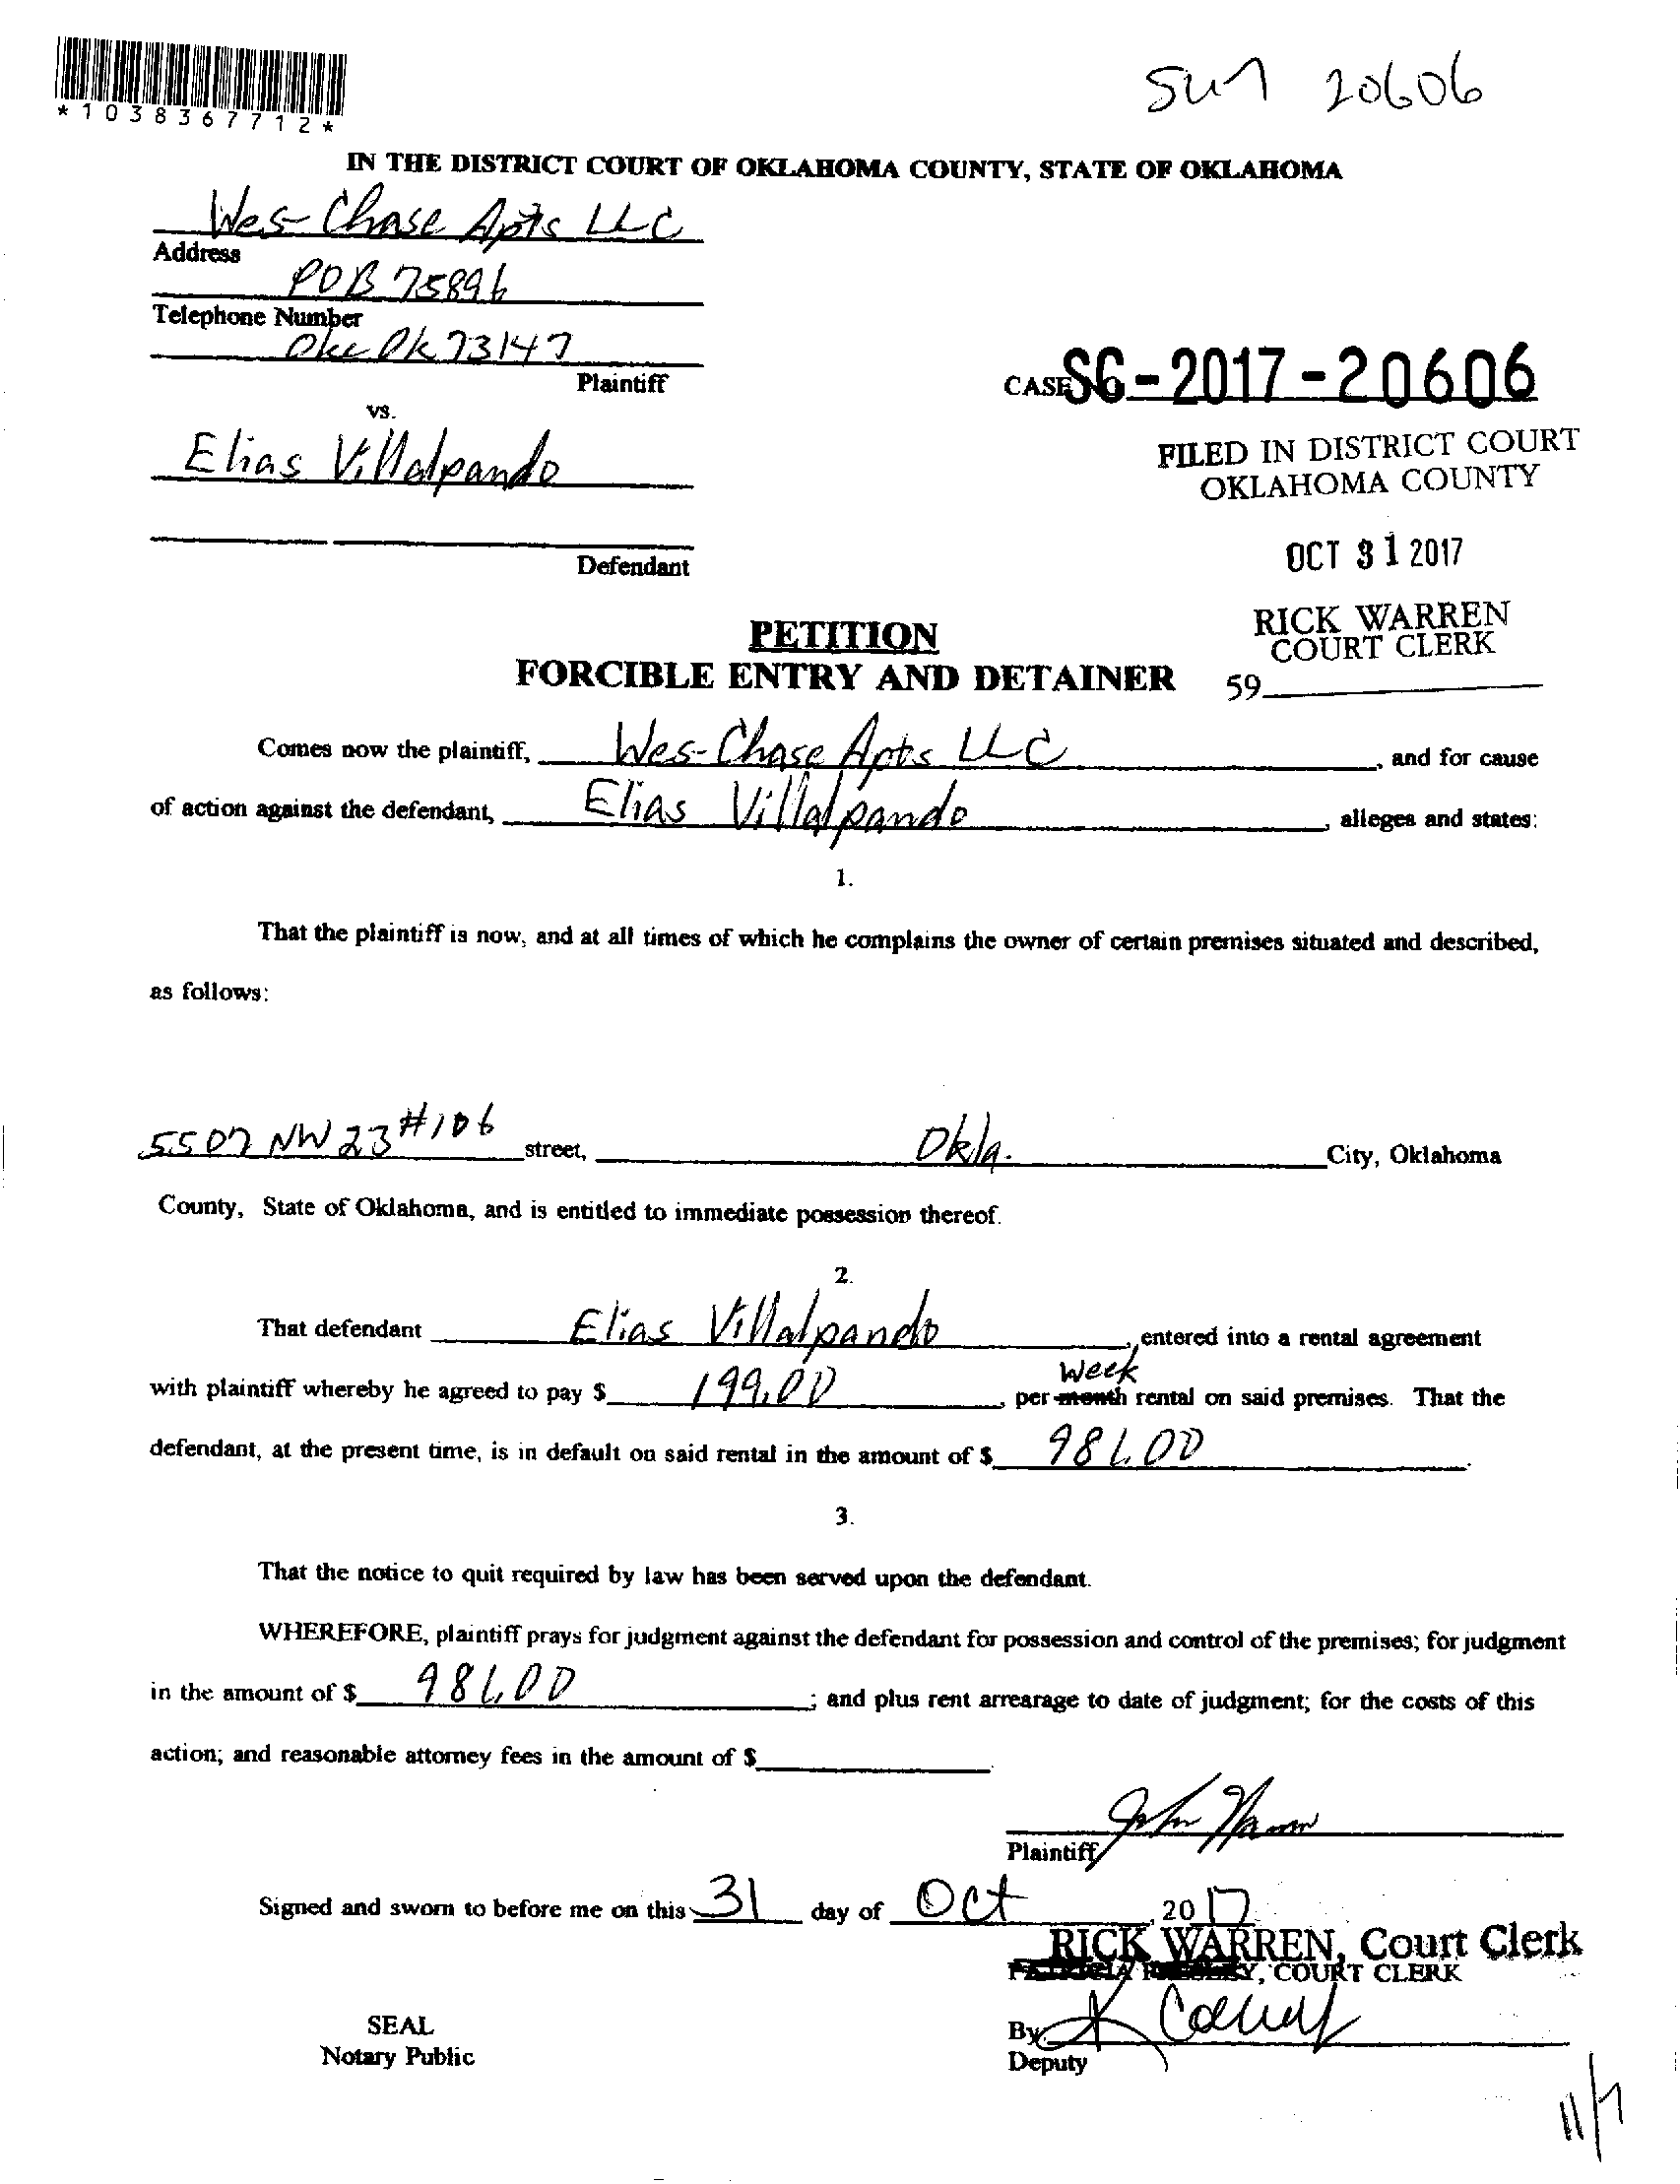 *1038367712*
20606
IN THE DISTRICT COURT OF OKLAHOMA COUNTY, STATE OF OKLAHOMA
Wes-Chase Apts LLC
Address
POB 75896
Telephone Number
Okc Ok 73147
Plaintiff
CASE NO. SC-2017-20606
vs.
Elias Villalpando
FILED IN DISTRICT COURT
OKLAHOMA COUNTY
Defendant
OCT 31 2017
RICK WARREN
COURT CLERK
59
PETITION
FORCIBLE ENTRY AND DETAINER
Comes now the plaintiff, Wes-Chase Apts LLC, and for cause
of action against the defendant, Elias Villalpando, alleges and states:
1.
That the plaintiff is now, and at all times of which he complains the owner of certain premises situated and described,
as follows:
5507 NW 23 #106 street, Okla. City, Oklahoma
County, State of Oklahoma, and is entitled to immediate possession thereof.
2.
That defendant Elias Villalpando, entered into a rental agreement
with plaintiff whereby he agreed to pay $ 199.00, per month Week rental on said premises. That the
defendant, at the present time, is in default on said rental in the amount of $ 981.00.
3.
That the notice to quit required by law has been served upon the defendant.
WHEREFORE, plaintiff prays for judgment against the defendant for possession and control of the premises; for judgment
in the amount of $ 981.00; and plus rent arrearage to date of judgment; for the costs of this
action; and reasonable attorney fees in the amount of $
John
Plaintiff
Signed and sworn to before me on this 31 day of Oct, 2017
RICK WARREN, Court Clerk
COURT CLERK
SEAL
By
Notary Public
Deputy
11/7